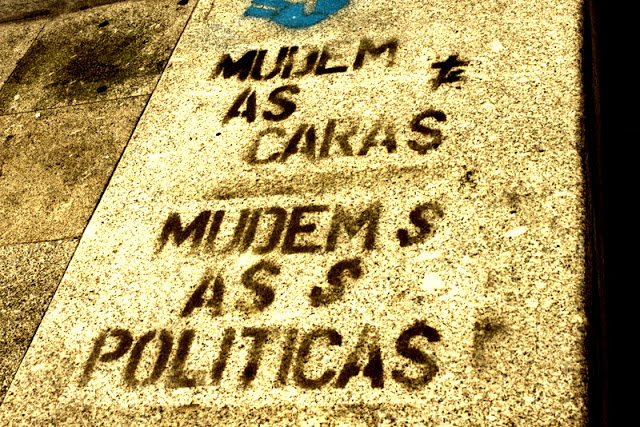 MUDEM
AS
CARAS
MUDEM S
AS S
POLITICAS